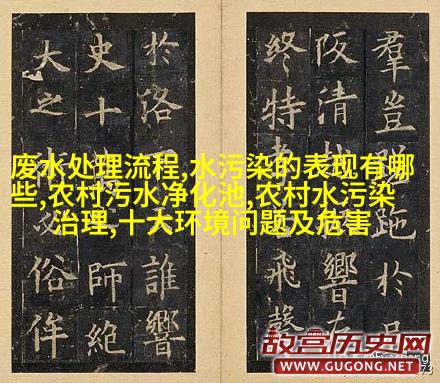 羣豈跎於
阪清響在
終特飛聲
於洛誰響
史十師絶
大之俗侔
废水处理流程,水污染的表现有哪
些,农村污水净化池,农村水污染
治理,十大环境问题及危害
故宫历史网
WWW.GUGONG.NET
73